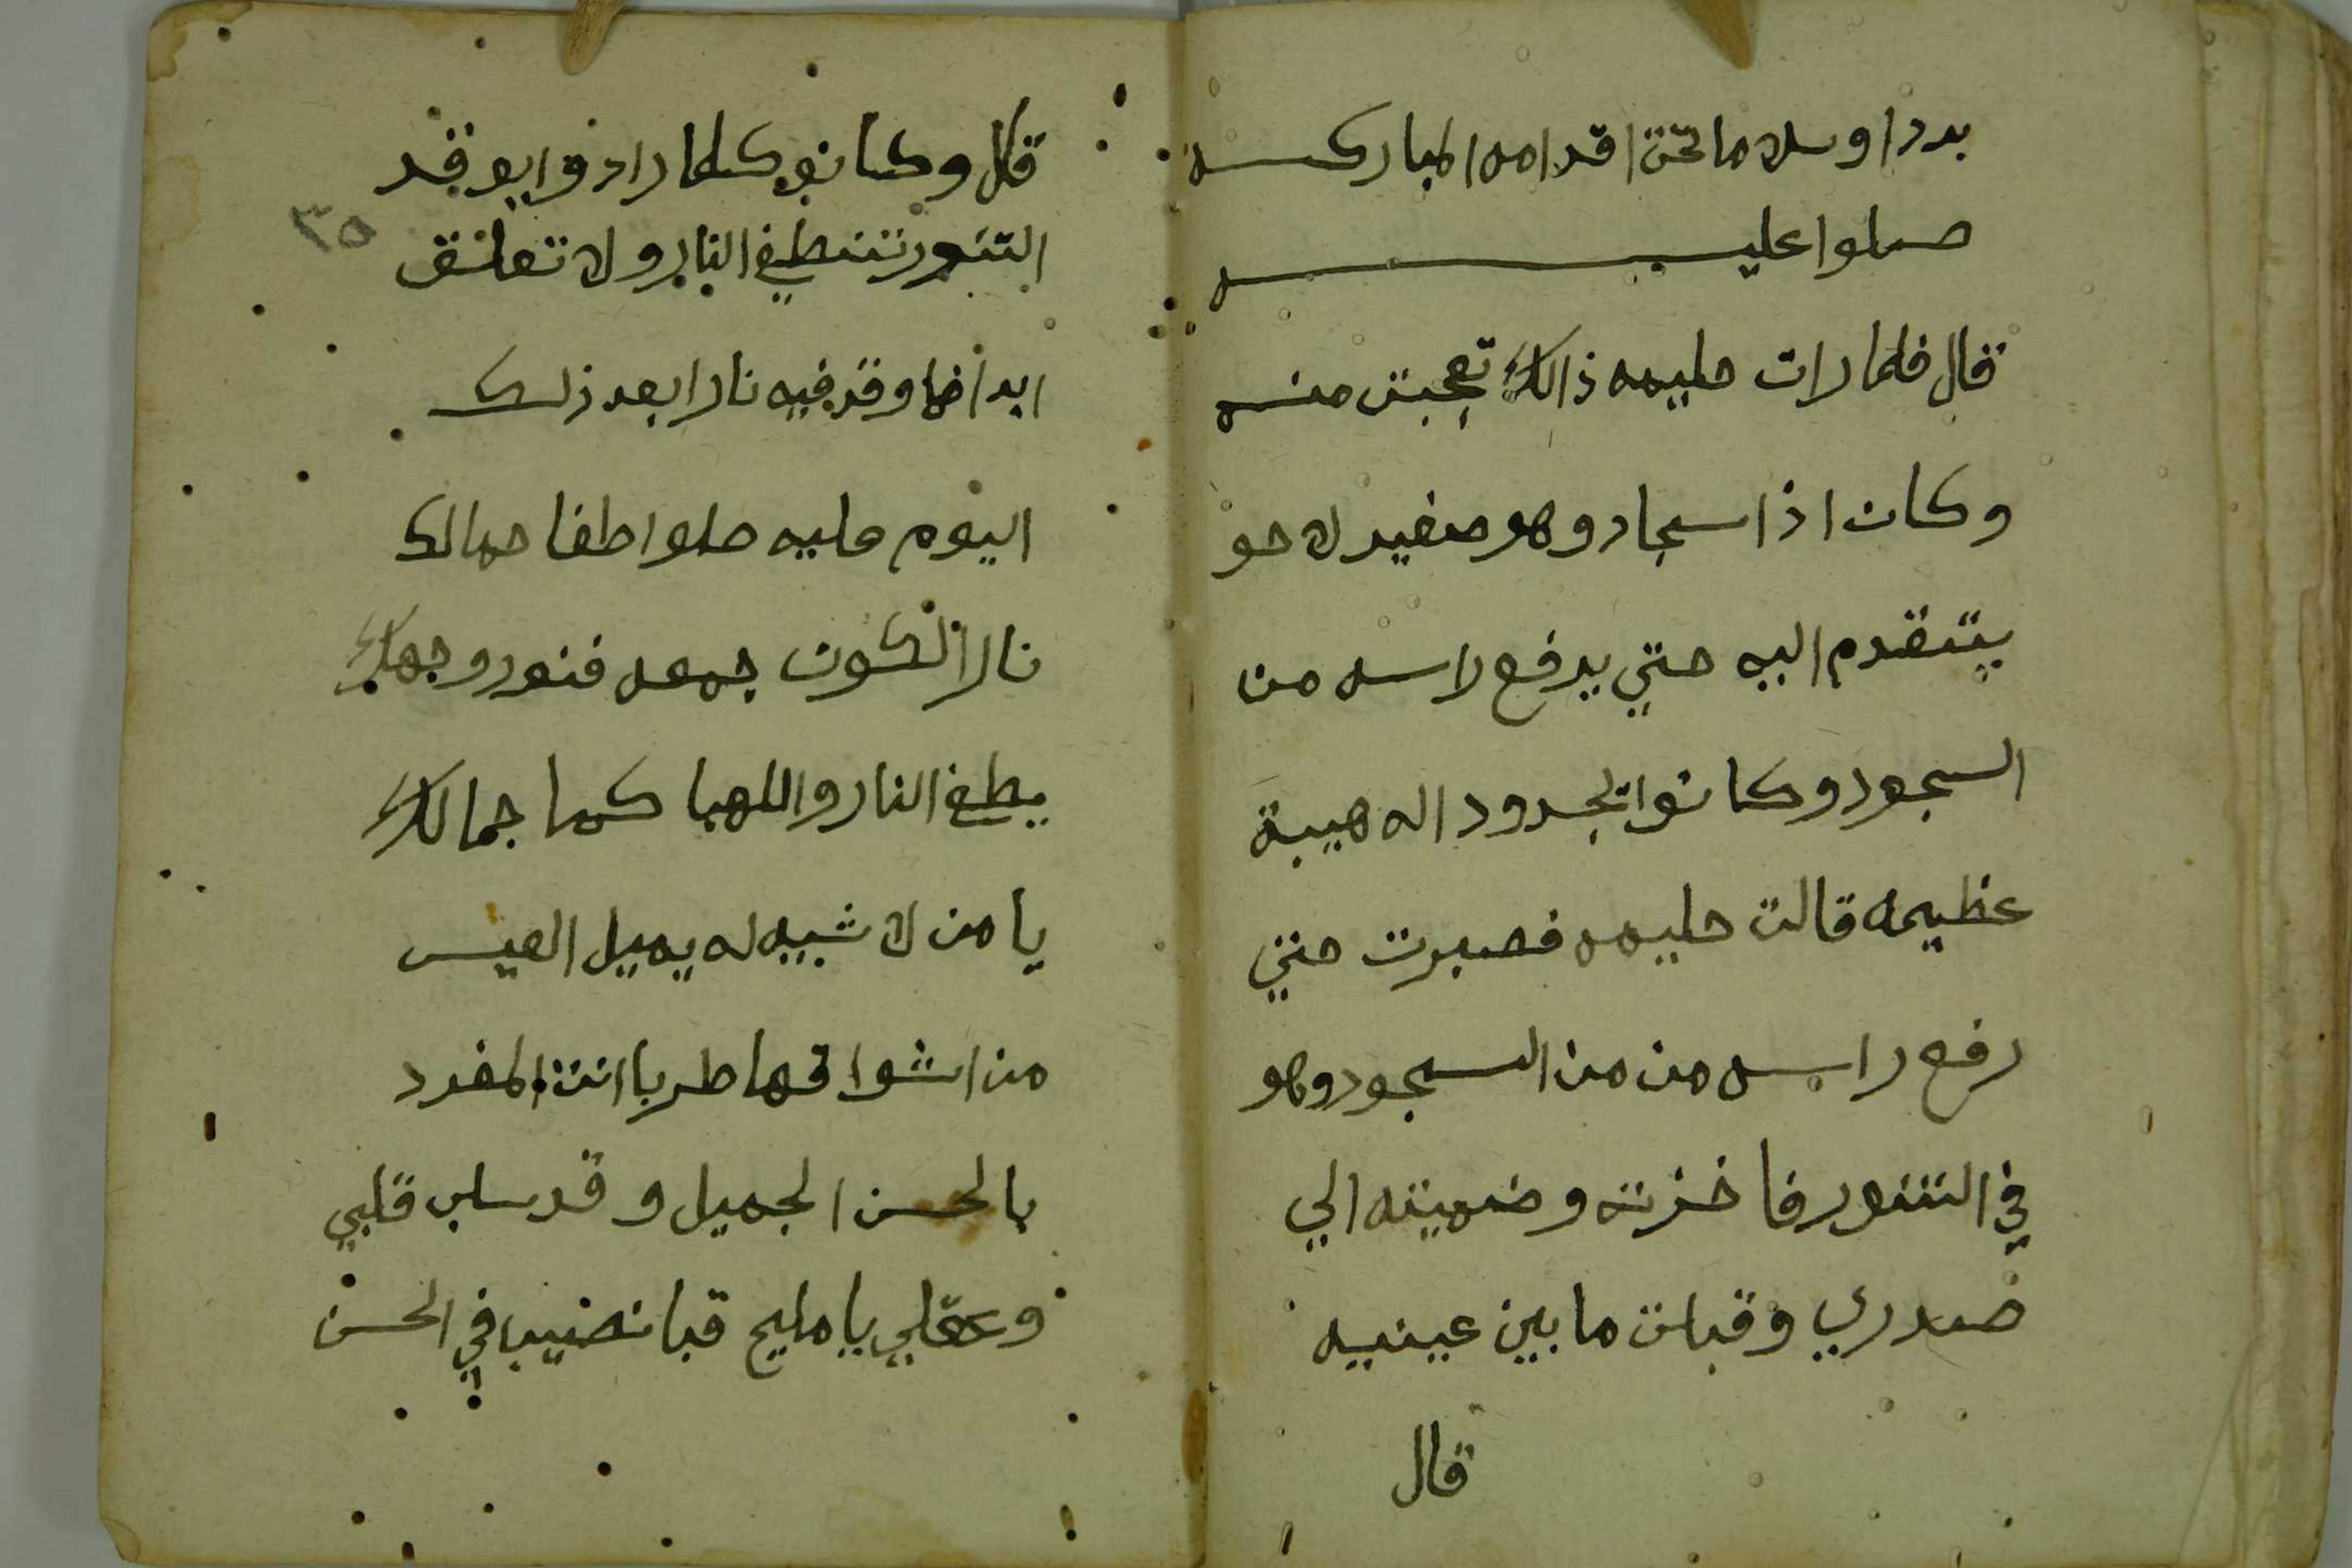 بردا وسلاما تحت اقدامه المباركه
صلوا عليه
قال فلما رات حليمه ذالك تعجبت منه
وكان اذا سجد وهو صغير لا حو
يتقدم اليه حتي يرفع راسه من
السجود وكانوا تجدوا له هيبة
عظيمه قالت حليمه فصبرت حتي
رفع راسه من من السجود وهو
في التنور فاخذته وضميته الي
صدري وقبلت ما بين عينيه
قال
قال وكانو كلما ارادو ايوقد
التنور تنطفي النار ولا تعلق
ابدا فما وقد فيه نارا بعد ذلك
اليوم عليه صلوا طفا جمالك
نارا الكون جمعه فنور وجهك
يطفي النار واللهبا كما جمالك
يا من لا شبيه له يميل العيس
من اشواقها طربا انت المفرد
بالحسن الجميل وقد سلب قلبي
وعقلي يا مليح قبا نصيب في الحسن
٣٥